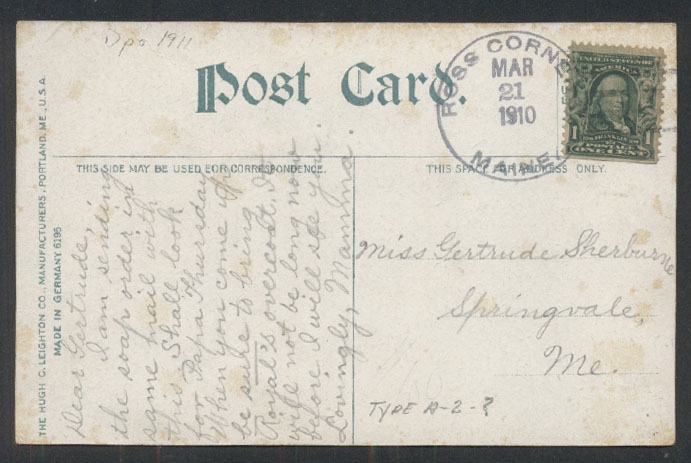 Dpo 1911
Post Card.
ROSS CORNE
MAR
21
1910
MAINE
UNITED STATES OF
AMERICA
1 1
POSTAGE
ONE CENT
THIS SIDE MAY BE USED FOR CORRESPONDENCE.
THIS SPACE FOR ADDRESS ONLY.
THE HUGH C. LEIGHTON CO., MANUFACTURERS, PORTLAND, ME., U.S.A.
MADE IN GERMANY 6195
Dear Gertrude,
I am sending
the soap order in
same mail with
this. Shall look
for Papa Thursday
When you come up
be sure to bring
Royal's overcoat. It
will not be long now
before I will see you.
Lovingly, Mamma.
Miss Gertrude Sherburne
Springvale,
Me.
TYPE A-2-2